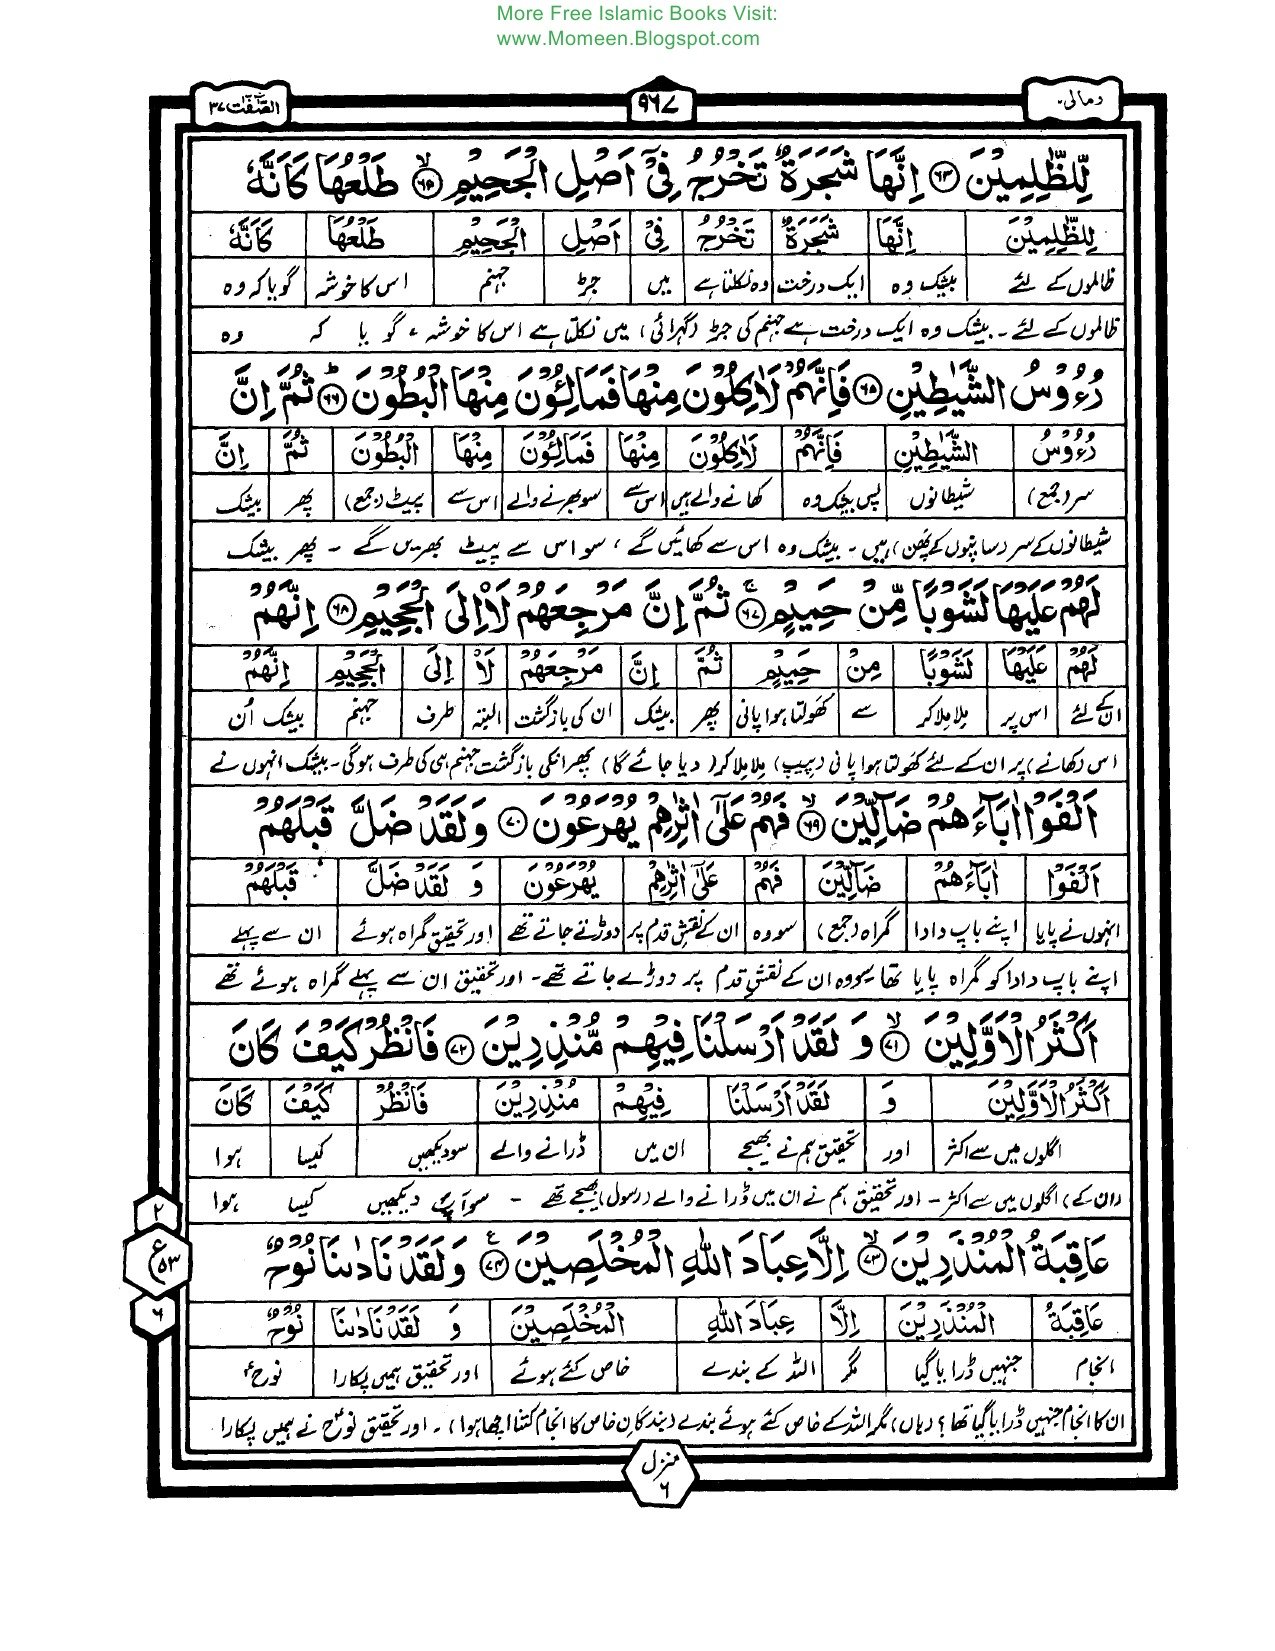 More Free Islamic Books Visit:
www.Momeen.Blogspot.com
ومالی۔ ۹۶۷ الصّٰفّٰت ۳۷
لِّلظّٰلِمِیْنَ ۶۳ اِنَّهَا شَجَرَةٌ تَخْرُجُ فِیْۤ اَصْلِ الْجَحِیْمِ ۶۴ طَلْعُهَا كَاَنَّهٗ
لِلظّٰلِمِیْنَ اِنَّهَا شَجَرَةٌ تَخْرُجُ فِیْۤ اَصْلِ الْجَحِیْمِ طَلْعُهَا كَاَنَّهٗ
ظالموں کے لئے بیشک وہ ایک درخت وہ نکلتا ہے میں جڑ جہنم اس کا خوشہ گویا کہ وہ
ظالموں کے لئے ۔ بیشک وہ ایک درخت ہے جہنم کی جڑ (گہرائی) میں نکلتا ہے اس کا خوشہ ، گو یا کہ وہ
رُءُوْسُ الشَّیٰطِیْنِ ۶۵ فَاِنَّهُمْ لَاٰكِلُوْنَ مِنْهَا فَمَالِـُٔوْنَ مِنْهَا الْبُطُوْنَ ۶۶ ثُمَّ اِنَّ
رُءُوْسُ الشَّیٰطِیْنِ فَاِنَّهُمْ لَاٰكِلُوْنَ مِنْهَا فَمَالِـُٔوْنَ مِنْهَا الْبُطُوْنَ ثُمَّ اِنَّ
سر (جمع) شیطانوں پس بیشک وہ کھانے والے ہیں اس سے سو بھرنے والے اس سے پیٹ (جمع) پھر بیشک
شیطانوں کے سر (سانپوں کے پھن) ہیں ۔ بیشک وہ اس سے کھائیں گے ، سو اس سے پیٹ بھریں گے ۔ پھر بیشک
لَهُمْ عَلَیْهَا لَشَوْبًا مِّنْ حَمِیْمٍ ۶۷ ثُمَّ اِنَّ مَرْجِعَهُمْ لَاۡاِلَی الْجَحِیْمِ ۶۸ اِنَّهُمْ
لَهُمْ عَلَیْهَا لَشَوْبًا مِنْ حَمِیْمٍ ثُمَّ اِنَّ مَرْجِعَهُمْ لَاۡ اِلَی الْجَحِیْمِ اِنَّهُمْ
ان کے لئے اس پر ملا ملا کر سے کھولتا ہوا پانی پھر بیشک ان کی بازگشت البتہ طرف جہنم بیشک اُن
اس (کھانے) پر ان کے لئے کھولتا ہوا پانی (پیپ) ملا ملا کر (دیا جائے گا) پھر انکی بازگشت جہنم ہی کی طرف ہوگی۔ بیشک انہوں نے
اَلْفَوْا اٰبَآءَهُمْ ضَآلِّیْنَ ۶۹ فَهُمْ عَلٰۤی اٰثٰرِهِمْ یُهْرَعُوْنَ ۷۰ وَ لَقَدْ ضَلَّ قَبْلَهُمْ
اَلْفَوْا اٰبَآءَهُمْ ضَآلِّیْنَ فَهُمْ عَلٰۤی اٰثٰرِهِمْ یُهْرَعُوْنَ وَ لَقَدْ ضَلَّ قَبْلَهُمْ
انہوں نے پایا اپنے باپ دادا گمراہ (جمع) سو وہ ان کے نقش قدم پر دوڑتے جاتے تھے اور تحقیق گمراہ ہوئے ان سے پہلے
اپنے باپ دادا کو گمراہ پایا تھا سو وہ ان کے نقش قدم پر دوڑے جاتے تھے۔ اور تحقیق ان سے پہلے گمراہ ہوئے تھے
اَكْثَرُ الْاَوَّلِیْنَ ۷۱ وَ لَقَدْ اَرْسَلْنَا فِیْهِمْ مُّنْذِرِیْنَ ۷۲ فَانْظُرْ كَیْفَ كَانَ
اَكْثَرُ الْاَوَّلِیْنَ وَ لَقَدْ اَرْسَلْنَا فِیْهِمْ مُنْذِرِیْنَ فَانْظُرْ كَیْفَ كَانَ
اگلوں میں سے اکثر اور تحقیق ہم نے بھیجے ان میں ڈرانے والے سو دیکھیں کیسا ہوا
(ان کے) اگلوں میں سے اکثر ۔ اور تحقیق ہم نے ان میں ڈرانے والے (رسول) بھیجے تھے ۔ سو آپ دیکھیں کیسا ہوا
عَاقِبَةُ الْمُنْذَرِیْنَ ۷۳ اِلَّا عِبَادَ اللّٰهِ الْمُخْلَصِیْنَ ۷۴ وَ لَقَدْ نَادٰىنَا نُوْحٌ
عَاقِبَةُ الْمُنْذَرِیْنَ اِلَّا عِبَادَ اللّٰهِ الْمُخْلَصِیْنَ وَ لَقَدْ نَادٰىنَا نُوْحٌ
انجام جنہیں ڈرایا گیا مگر اللہ کے بندے خاص کئے ہوئے اور تحقیق ہمیں پکارا نوحؑ
ان کا انجام جنہیں ڈرایا گیا تھا ؟ (ہاں) مگر اللہ کے خاص کئے ہوئے بندے (بندگانِ خاص کا انجام کتنا اچھا ہوا) ۔ اور تحقیق نوحؑ نے ہمیں پکارا
۲
ع ۵۳
۶
منزل
۶